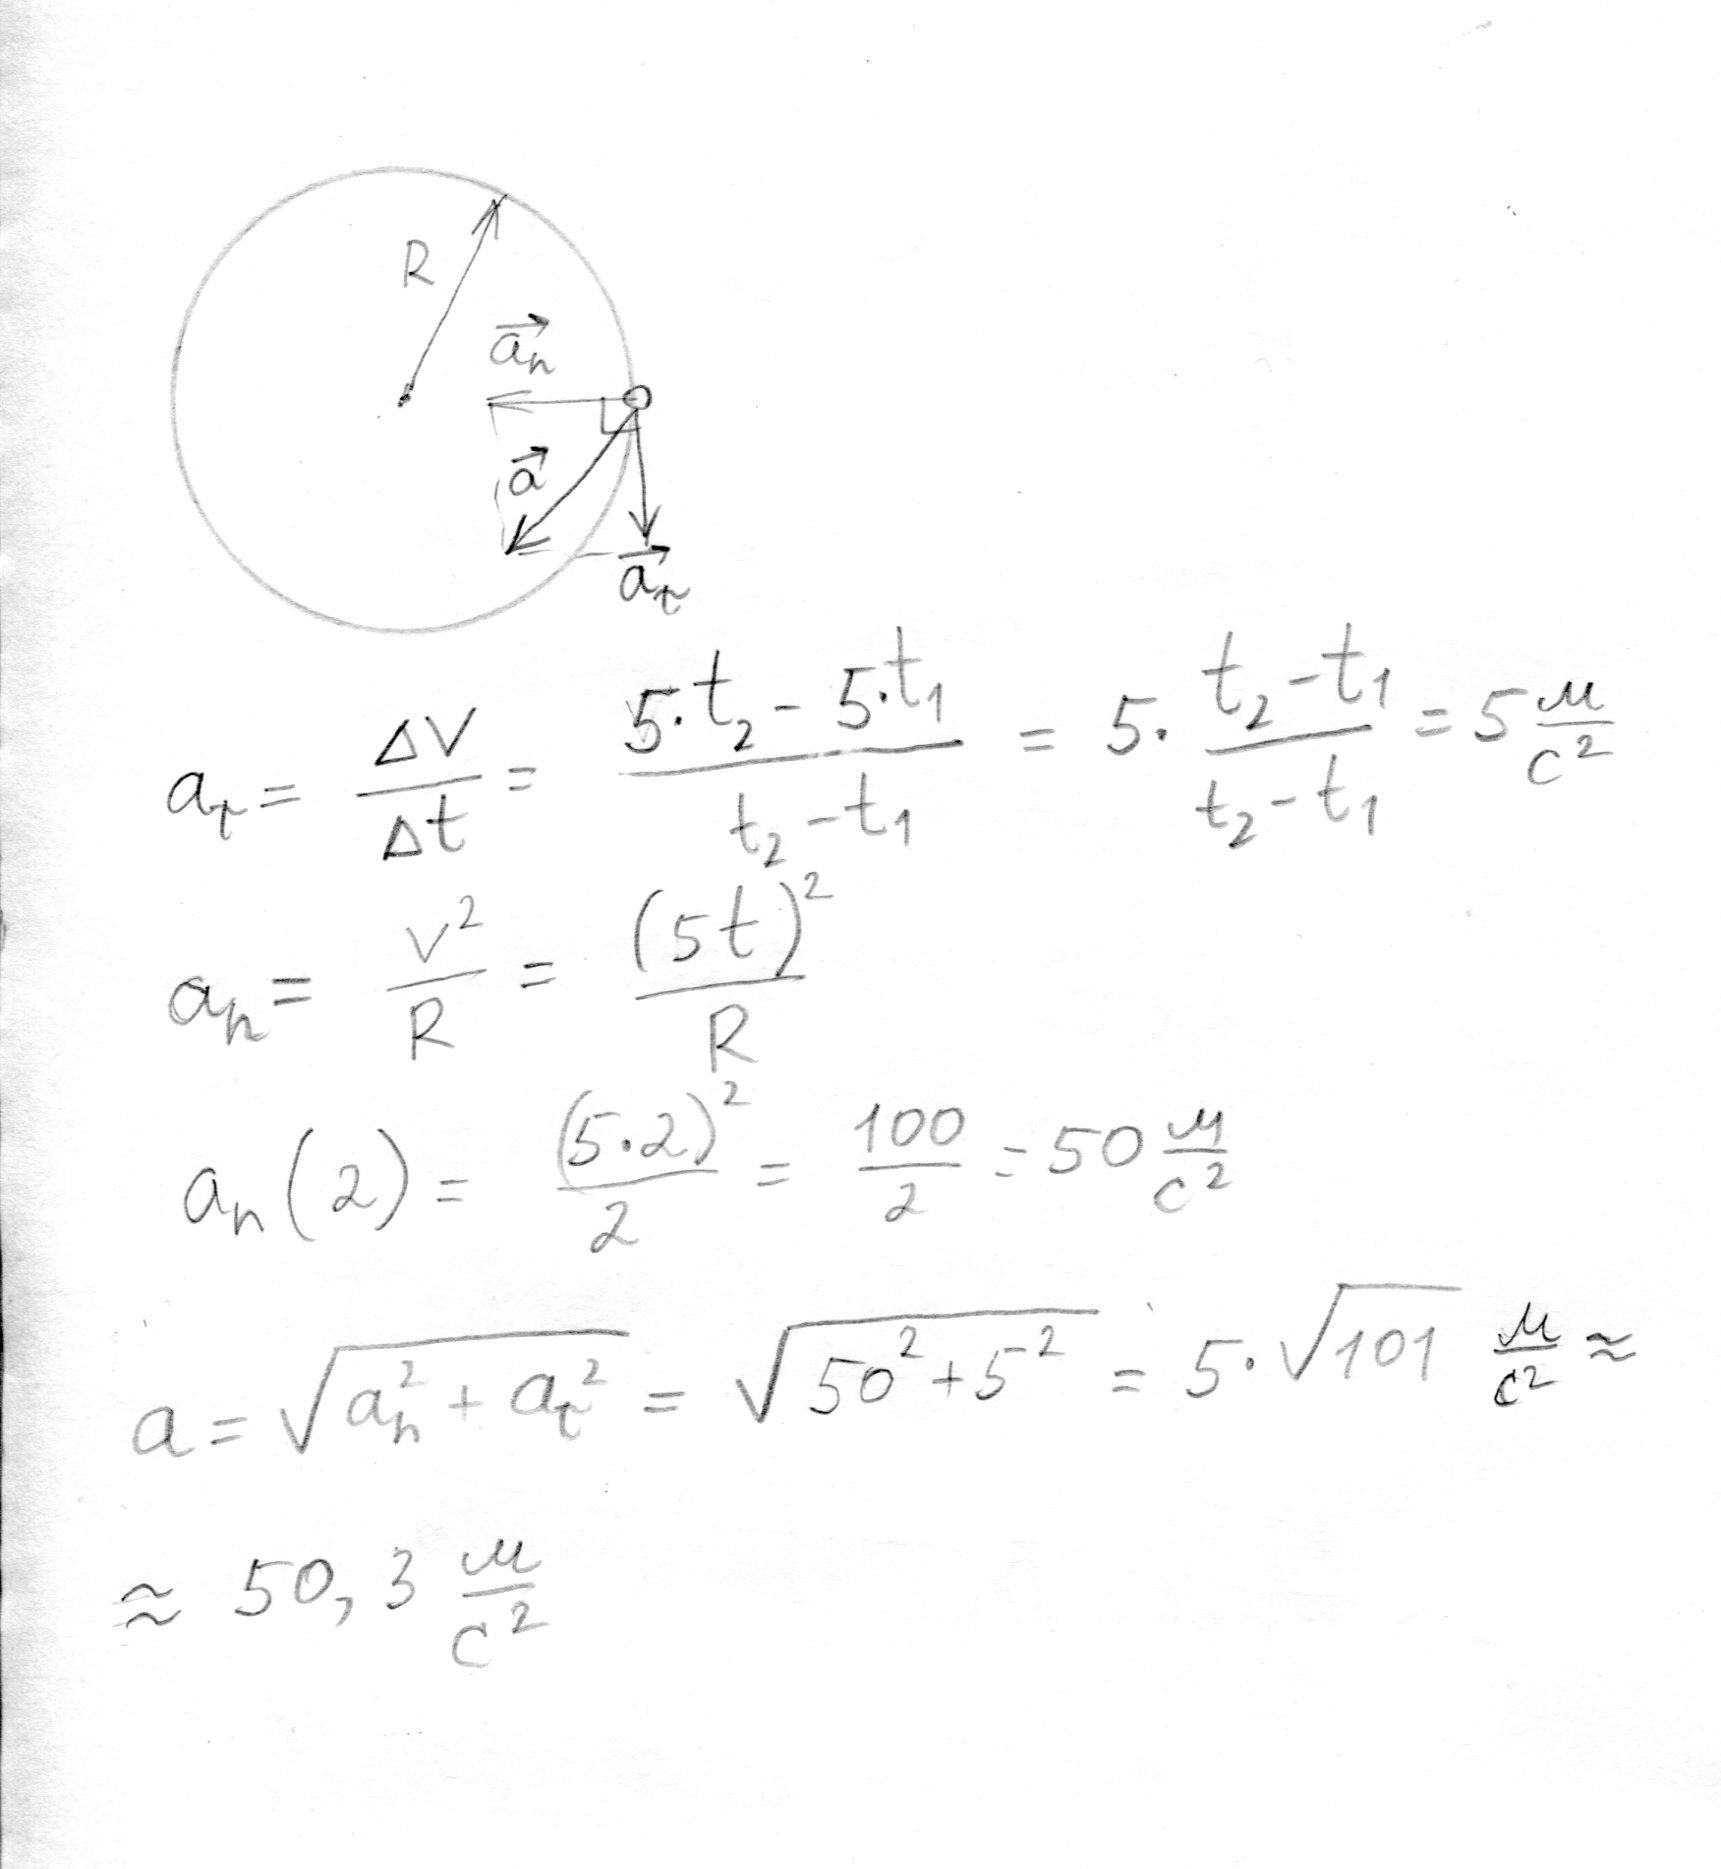 R
a⃗ₙ
a⃗
a⃗_τ
a_τ = ΔV/Δt = (5·t₂ - 5·t₁)/(t₂ - t₁) = 5·(t₂ - t₁)/(t₂ - t₁) = 5 м/с²
aₙ = v²/R = (5t)²/R
aₙ(2) = (5·2)²/2 = 100/2 = 50 м/с²
a = √(aₙ² + a_τ²) = √(50² + 5²) = 5·√101 м/с² ≈
≈ 50,3 м/с²